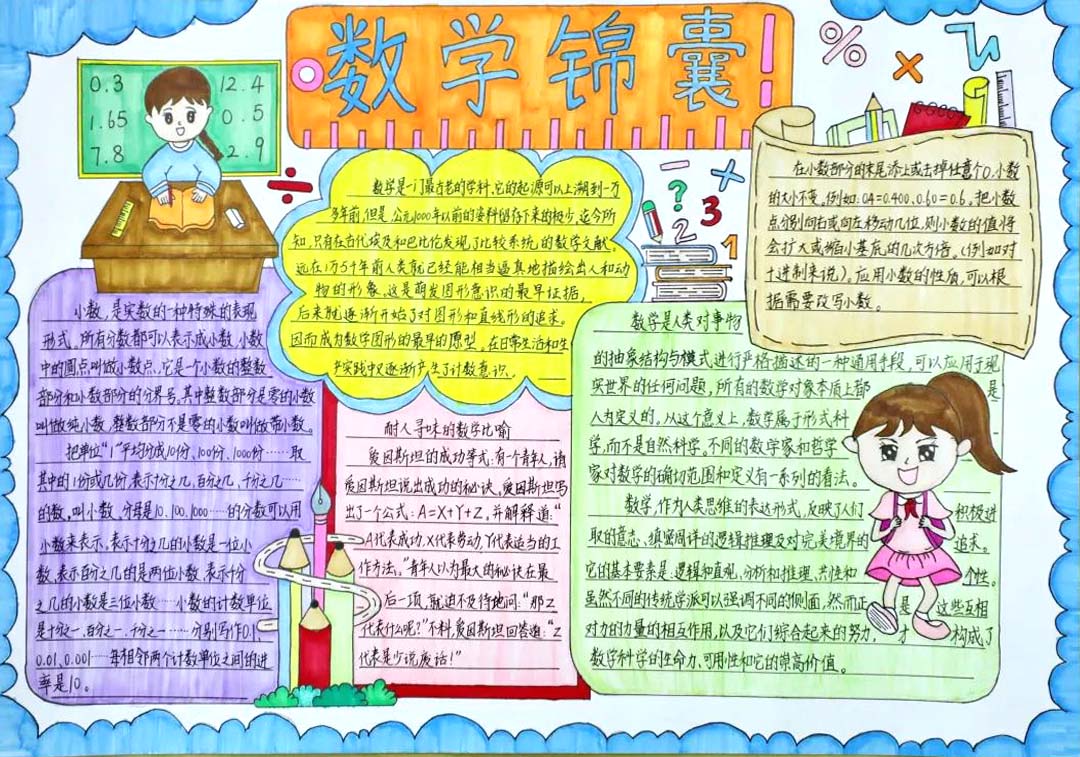 数学锦囊
0.3 12.4
1.65 0.5
7.8 2.9
数学是一门最古老的学科,它的起源可以上溯到一万
多年前,但是,公元1000年以前的资料留存下来的极少,迄今所
知,只有在古代埃及和巴比伦发现了比较系统的数学文献。
远在1万5千年前人类就已经能相当逼真地描绘出人和动
物的形象。这是萌发图形意识的最早证据,
后来就逐渐开始了对图形和直线形的追求。
因而成为数学图形的最早的原型。在日常生活和生
产实践中又逐渐产生了计数意识。
在小数部分的末尾添上或去掉任意个0,小数
的大小不变。例如:0.4=0.400,0.60=0.6。把小数
点分别向右或向左移动几位,则小数的值将
会扩大或缩小基底的几次方倍。(例如对
十进制来说)。应用小数的性质,可以根
据需要改写小数。
小数,是实数的一种特殊的表现
形式。所有分数都可以表示成小数,小数
中的圆点叫做小数点,它是一个小数的整数
部分和小数部分的分界号,其中整数部分是零的小数
叫做纯小数,整数部分不是零的小数叫做带小数。
把单位“1”平均分成10份、100份、1000份……取
其中的1份或几份,表示十分之几,百分之几,千分之几……
的数,叫小数,分母是10、100、1000……的分数可以用
小数来表示,表示十分之几的小数是一位小
数,表示百分之几的是两位小数,表示千分
之几的小数是三位小数……小数的计数单位
是十分之一,百分之一,千分之一……分别写作0.1,
0.01,0.001……每相邻两个计数单位之间的进
率是10。
耐人寻味的数学比喻
爱因斯坦的成功等式:有个青年人,请
爱因斯坦说出成功的秘诀。爱因斯坦写
出了一个公式:A=X+Y+Z,并解释道:“
A代表成功,X代表劳动,Y代表适当的工
作方法。”青年人以为最大的秘诀在最
后一项,就迫不及待地问:“那Z
代表什么呢?”不料,爱因斯坦回答道:“Z
代表是少说废话!”
数学是人类对事物
的抽象结构与模式进行严格描述的一种通用手段,可以应用于现
实世界的任何问题,所有的数学对象本质上都 是
人为定义的。从这个意义上,数学属于形式科
学,而不是自然科学。不同的数学家和哲学
家对数学的确切范围和定义有一系列的看法。
数学,作为人类思维的表达形式,反映了人们 积极进
取的意志、缜密周详的逻辑推理及对完美境界的 追求。
它的基本要素是:逻辑和直观、分析和推理、共性和 个性。
虽然不同的传统学派可以强调不同的侧面,然而正 是 这些互相
对力的力量的相互作用,以及它们综合起来的努力, 才 构成了
数学科学的生命力、可用性和它的崇高价值。
% × ÷
- +
? 3
2 1